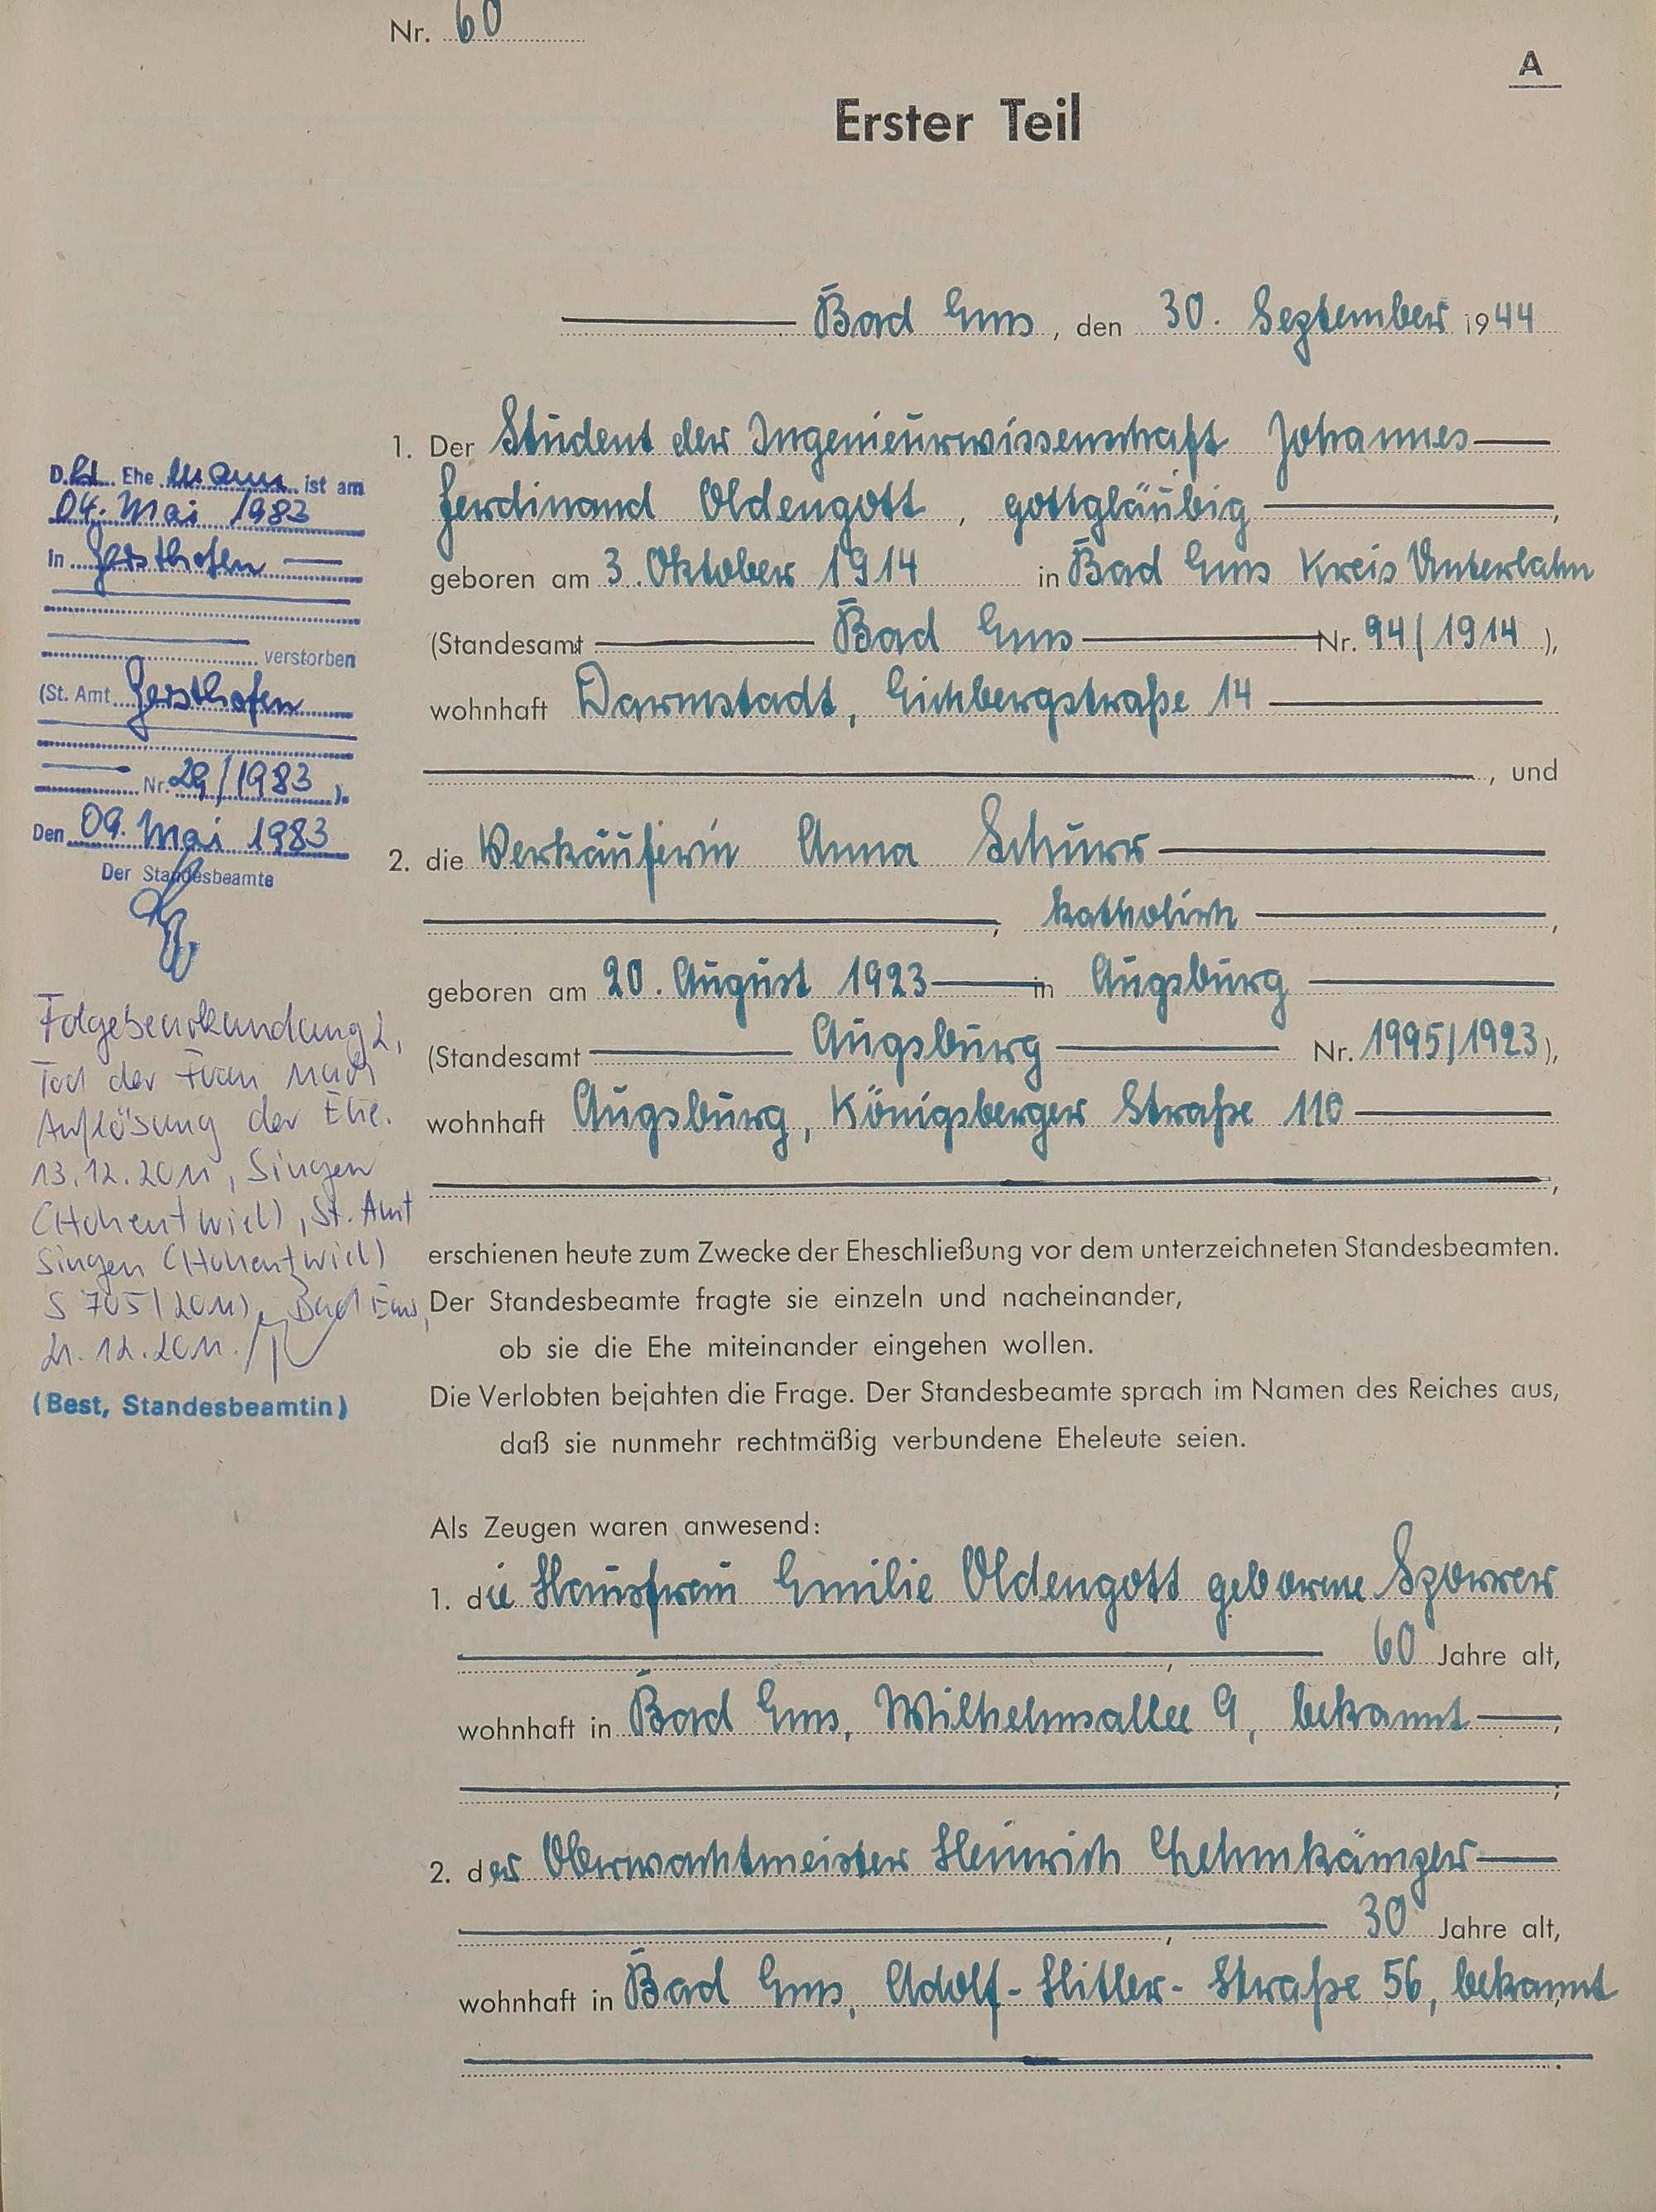 Nr. 60
A
Erster Teil
Bad Ems, den 30. September 1944
1. Der Student der Ingenieurwissenschaft Johannes
Ferdinand Oldengott, gottgläubig,
geboren am 3. Oktober 1914 in Bad Ems Kreis Unterlahn
(Standesamt Bad Ems Nr. 94/1914),
wohnhaft Darmstadt, Eichbergstraße 14
, und
2. die Verkäuferin Anna Schurr
, katholisch,
geboren am 20. August 1923 in Augsburg
(Standesamt Augsburg Nr. 1995/1923),
wohnhaft Augsburg, Königsberger Straße 110
,
erschienen heute zum Zwecke der Eheschließung vor dem unterzeichneten Standesbeamten.
Der Standesbeamte fragte sie einzeln und nacheinander,
ob sie die Ehe miteinander eingehen wollen.
Die Verlobten bejahten die Frage. Der Standesbeamte sprach im Namen des Reiches aus,
daß sie nunmehr rechtmäßig verbundene Eheleute seien.
Als Zeugen waren anwesend:
1. die Hausfrau Emilie Oldengott geborene Sporrer
, 60 Jahre alt,
wohnhaft in Bad Ems, Wilhelmsallee 9, bekannt,
;
2. der Oberwachtmeister Heinrich
, 30 Jahre alt,
wohnhaft in Bad Ems, Adolf-Hitler-Straße 56, bekannt,
.
D.er Ehe mann ist am
04. Mai 1983
in Gersthofen
verstorben
(St. Amt Gersthofen
Nr. 29/1983 ).
Den 09. Mai 1983
Der Standesbeamte
Folgebeurkundung 2,
Tod der Frau nach
Auflösung der Ehe.
13.12.2011, Singen
(Hohentwiel), St. Amt
Singen (Hohentwiel)
S 705/2011), Bad Ems,
21.12.2011.
(Best, Standesbeamtin)